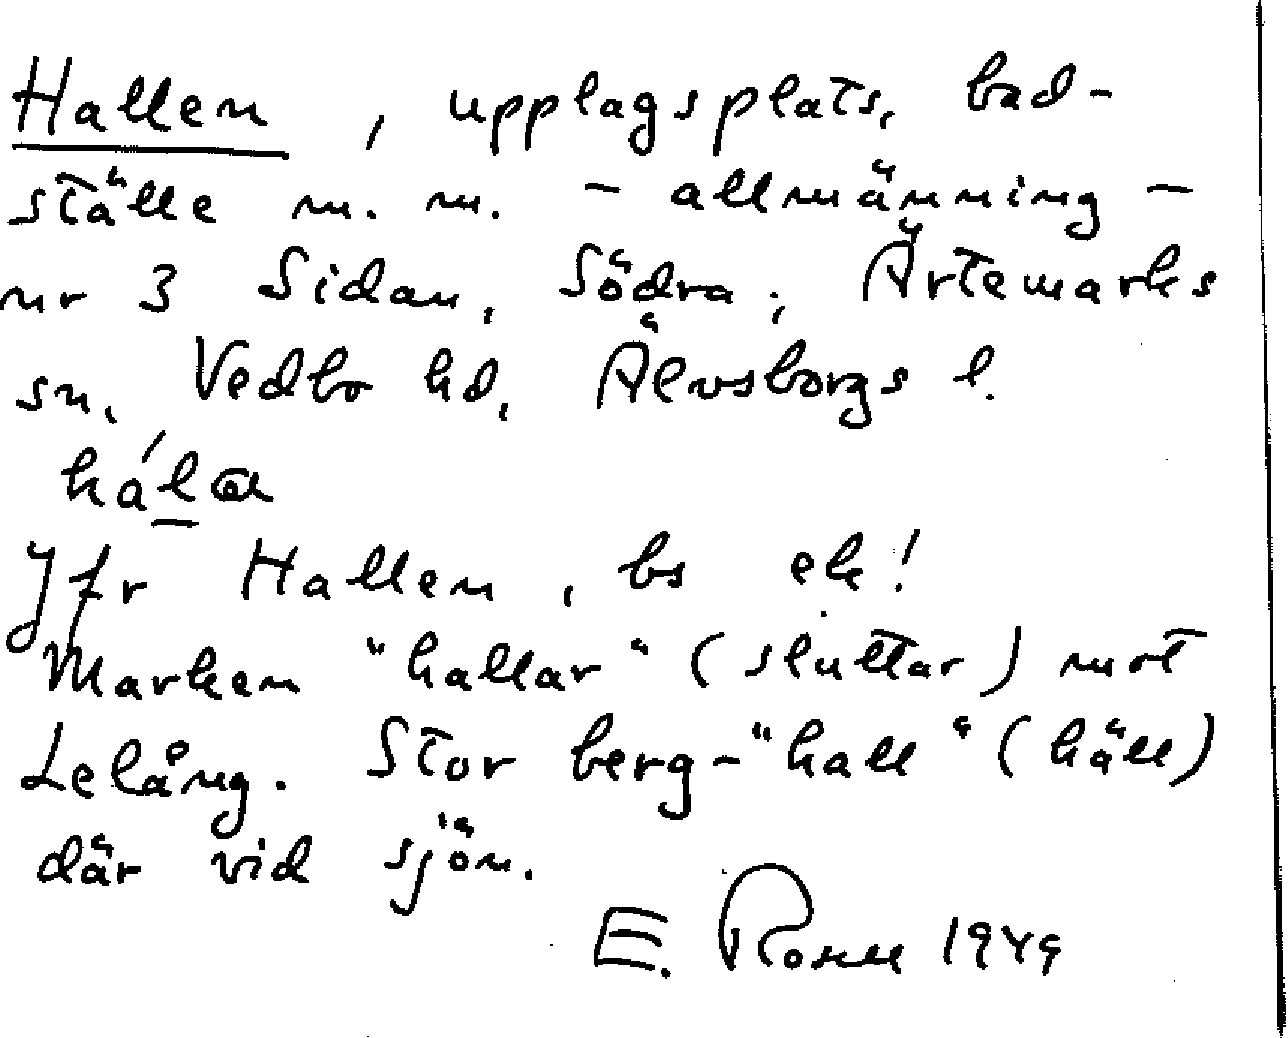 Hallen, upplagsplats, bad-
ställe m. m. - allmänning -
nr 3 Sidan, Södra, Ärtemarks
sn, Vedbo hd, Älvsborgs l.
Jfr Hallen, bs ek!
Marken "hallar" (sluttar) mot
Lelång. Stor berg-"hall" (häll)
där vid sjön.
E. Rosell 1949